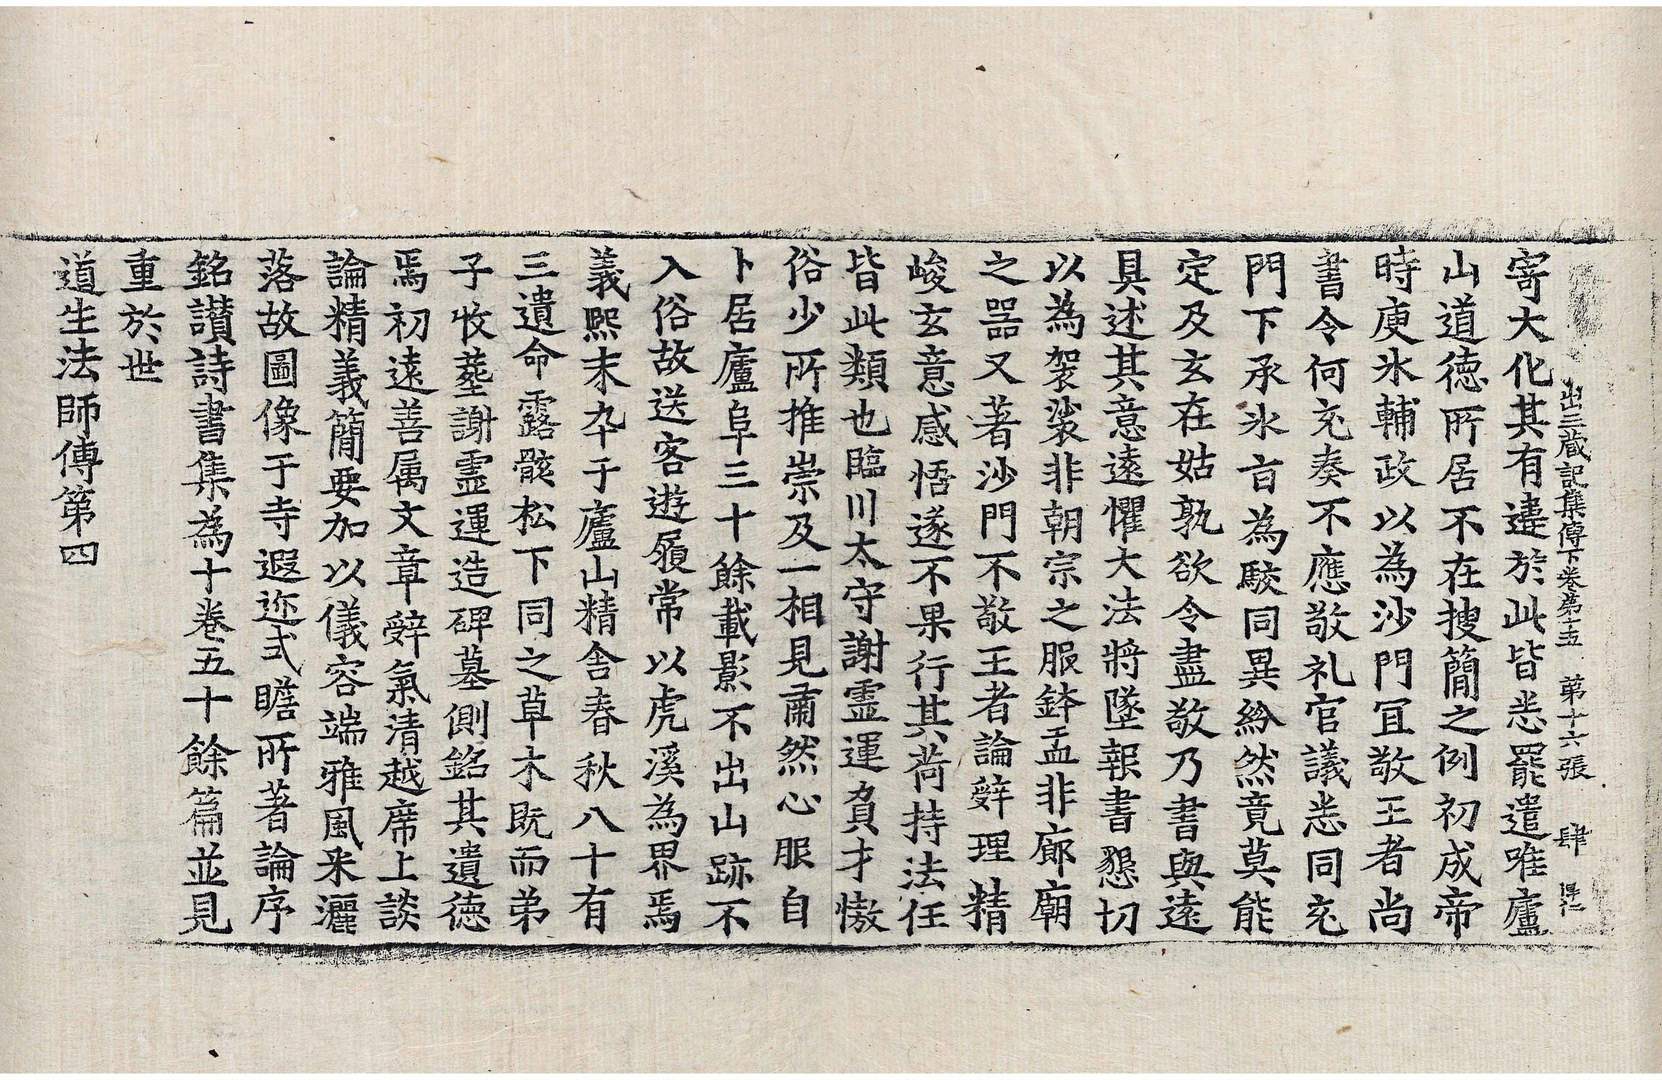 出三藏記集傳下卷第十五 第十六張 肆
寄大化其有違於此皆悉罷遣唯廬
山道德所居不在搜簡之例初成帝
時庾氷輔政以為沙門冝敬王者尚
書令何充奏不應敬礼官議悉同充
門下承氷旨為駮同異紛然竟莫能
定及玄在姑孰欲令盡敬乃書與遠
具述其意遠懼大法將墜報書懇切
以為袈裟非朝宗之服鉢盂非廊廟
之器又著沙門不敬王者論辝理精
峻玄意感悟遂不果行其荷持法任
皆此類也臨川太守謝霊運負才慠
俗少所推崇及一相見肅然心服自
卜居廬阜三十餘載影不出山跡不
入俗故送客遊履常以虎溪為界焉
義熙末卒于廬山精舎春秋八十有
三遺命露骸松下同之草木既而弟
子收葬謝霊運造碑墓側銘其遺德
焉初遠善属文章辝氣清越席上談
論精義簡要加以儀容端雅風釆灑
落故圖像于寺遐迩式瞻所著論序
銘讃詩書集為十卷五十餘篇並見
重於世
道生法師傳第四